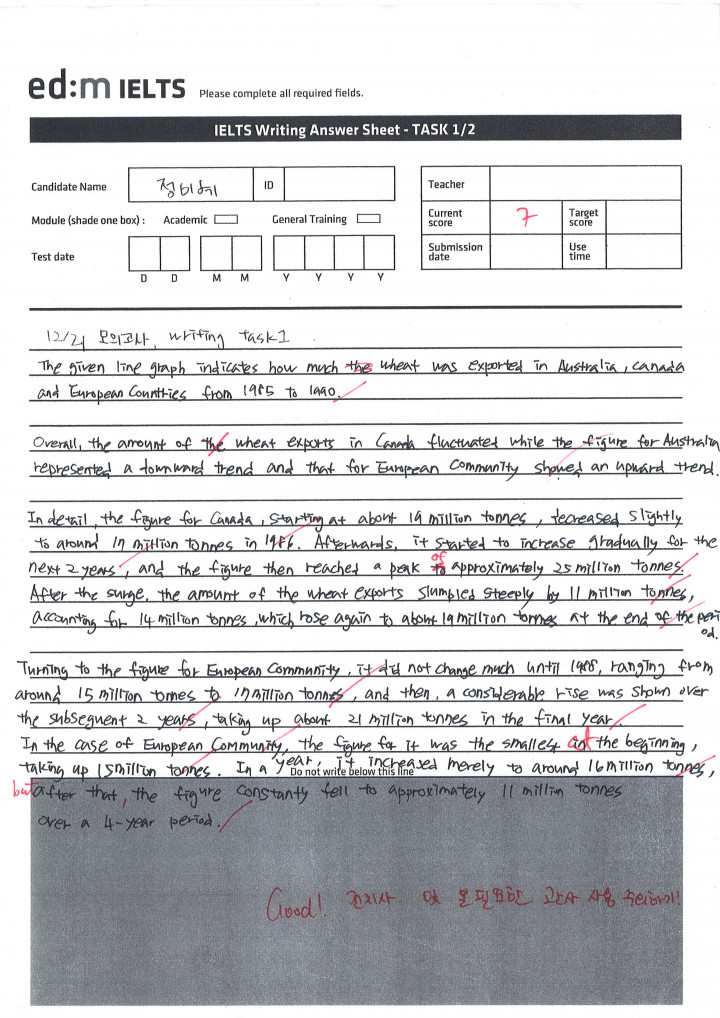 ed:m IELTS Please complete all required fields.
IELTS Writing Answer Sheet - TASK 1/2
Candidate Name ID
Teacher
Module (shade one box) : Academic General Training
Current score 7 Target score
Test date
Submission date Use time
D D M M Y Y Y Y
12/21 모의고사, writing task1
The given line graph indicates how much the wheat was exported in Australia, Canada
and European Countries from 1985 to 1990.
Overall, the amount of the wheat exports in Canada fluctuated while the figure for Australia
represented a downward trend and that for European Community showed an upward trend.
In detail, the figure for Canada, starting at about 19 million tonnes, decreased slightly
to around 17 million tonnes in 1986. Afterwards, it started to increase gradually for the
of
next 2 years, and the figure then reached a peak to approximately 25 million tonnes.
After the surge, the amount of the wheat exports slumpled steeply by 11 million tonnes,
accounting for 14 million tonnes, which rose again to about 19 million tonnes at the end of the peri
od.
Turning to the figure for European Community, it did not change much until 1988, ranging from
around 15 million tonnes to 17 million tonnes, and then, a considerable rise was shown over
the subsequent 2 years, taking up about 21 million tonnes in the final year.
In the case of European Community, the figure for it was the smallest at the beginning,
taking up 15 million tonnes. In a year, it increased merely to around 16 million tonnes,
Do not write below this line
but after that, the figure constanty fell to approximately 11 million tonnes
over a 4-year period.
Good! 전치사 및 불필요한 관사 사용 주의하기!